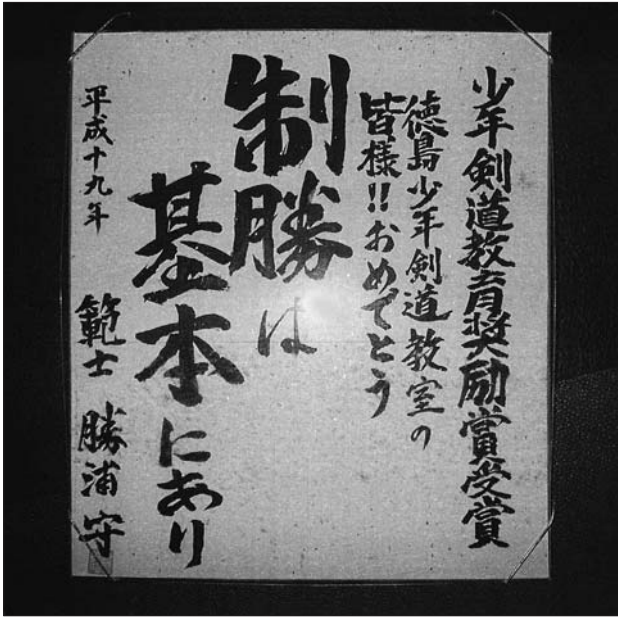 少年剣道教育奨励賞受賞
徳島少年剣道教室の
皆様!!おめでとう
制勝は
基本にあり
平成十九年
範士 勝浦守